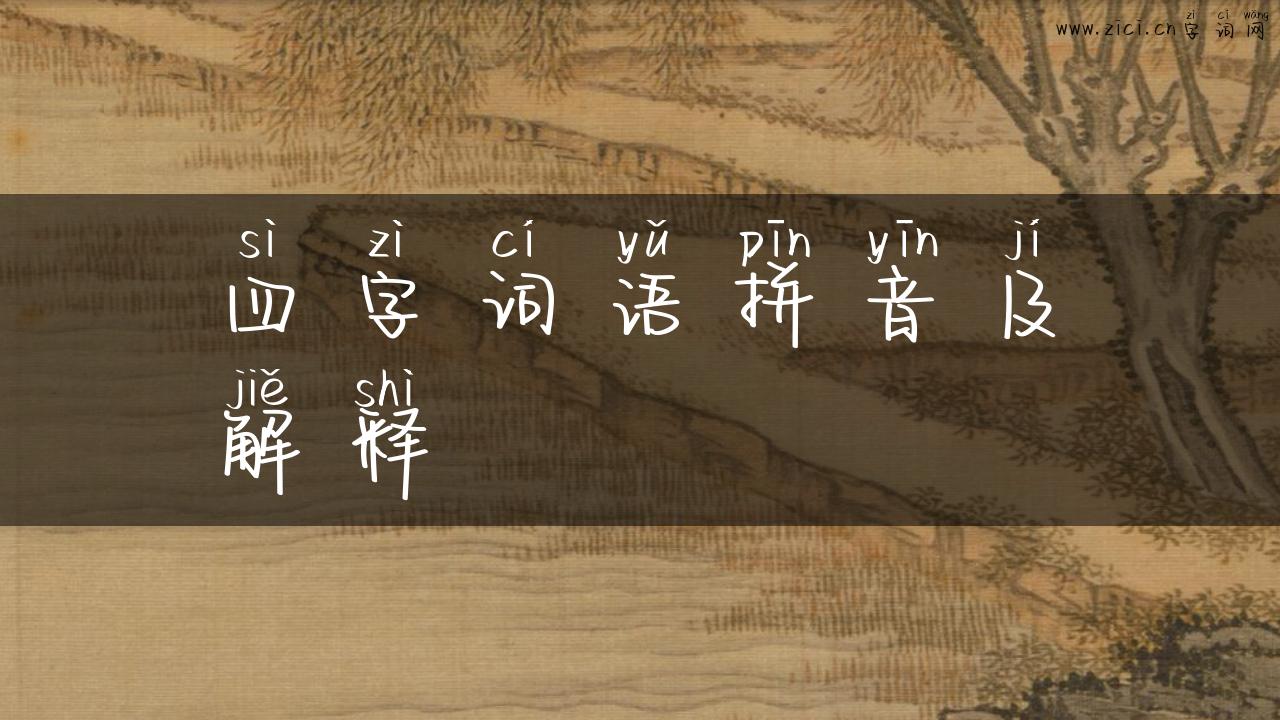 zì cí wǎng
www.zici.cn 字 词 网
sì zì cí yǔ pīn yīn jí
四 字 词 语 拼 音 及
jiě shì
解 释